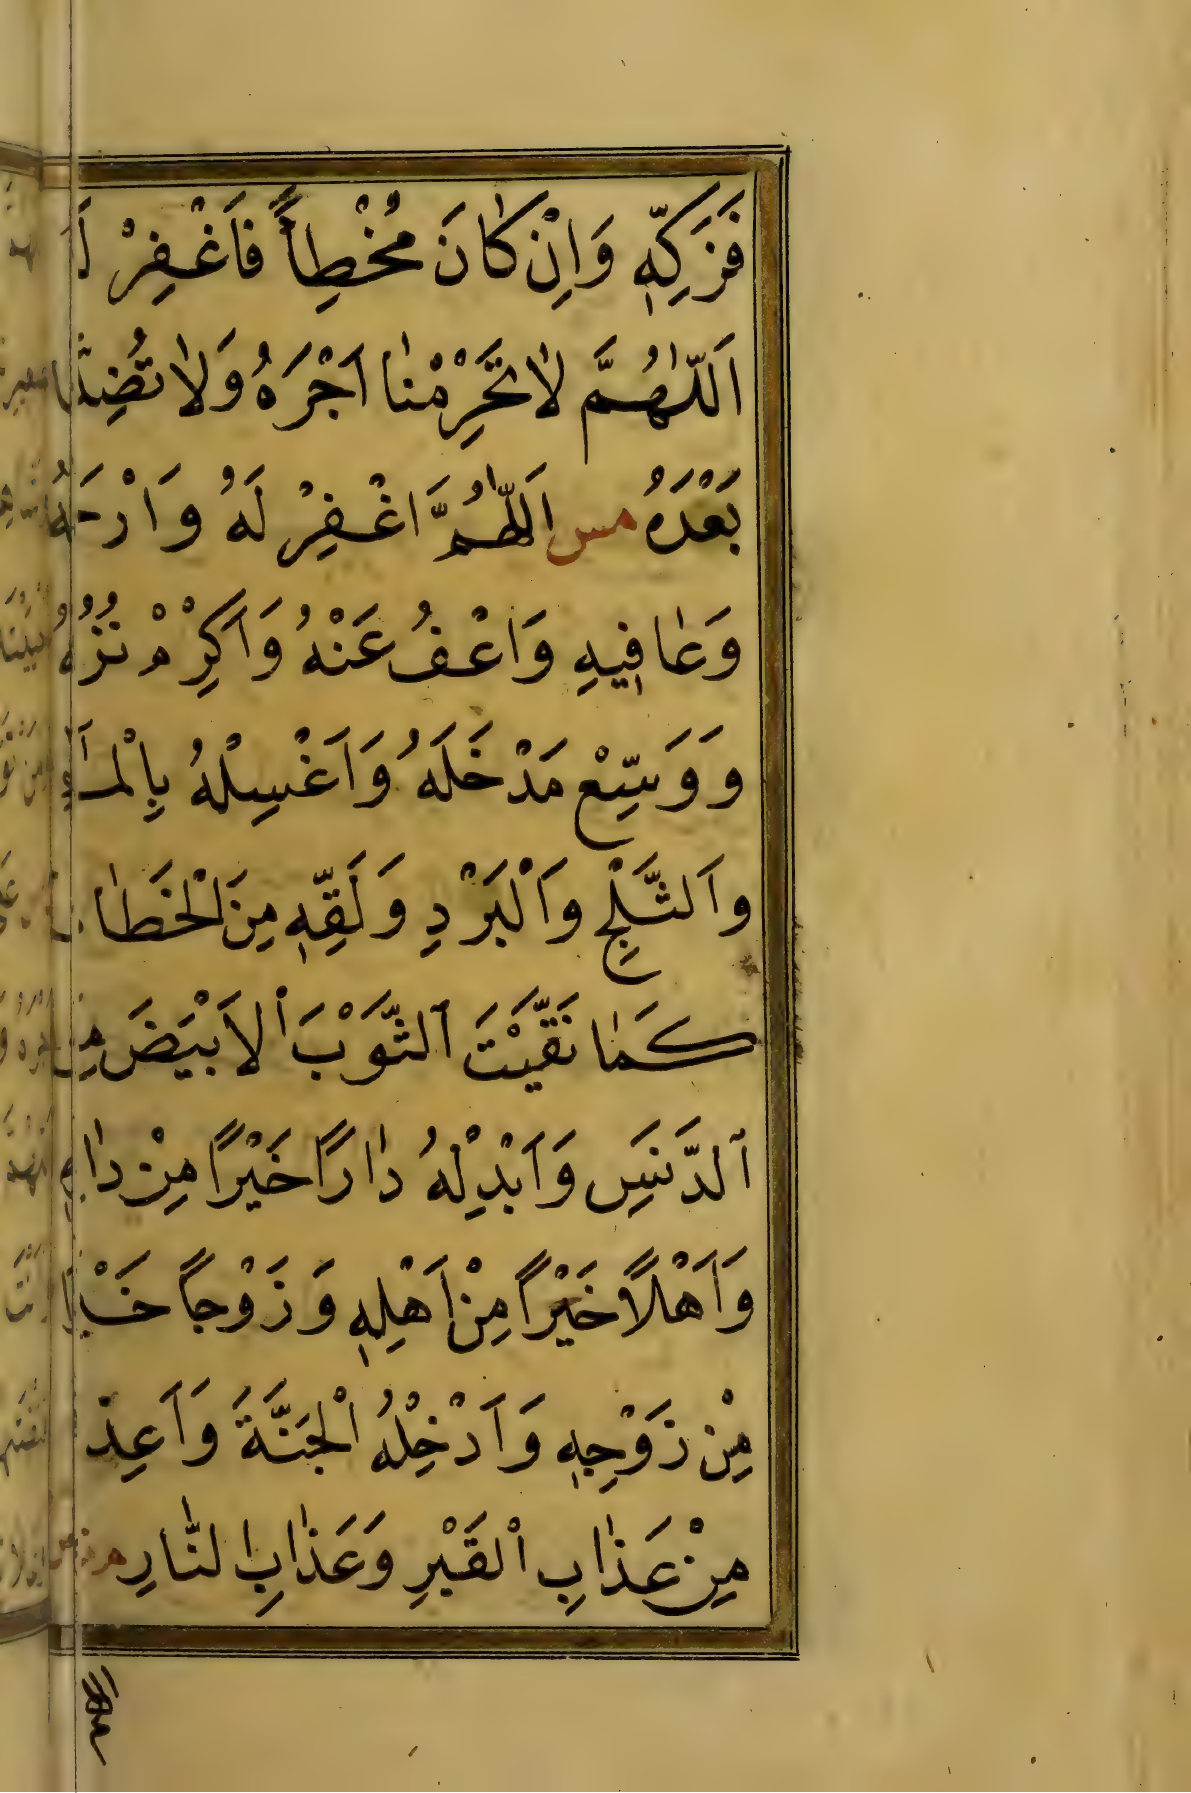 فَزَكِّهٖ وَاِنْ كَانَ مُخْطِأً فَاَغْفِرْ
اَللّٰهُمَّ لاٰ تَحْرِمْنٰا اَجْرَهُ وَلاٰ تُضِلَّنا
بَعْدَهُ مس اَللّٰهُمَّ اغْفِرْ لَهُ وَارْحَمْهُ
وَعٰافِيهِ وَاعْفُ عَنْهُ وَاَكْرِمْ نُزُلَهُ
وَوَسِّعْ مَدْخَلَهُ وَاَغْسِلْهُ بِالْمَآءِ
وَالثَّلْجِ وَالْبَرْدِ وَلَقِّهٖ مِنَ الْخَطٰا
كَمٰا نَقَّيْتَ الثَّوْبَ الْاَبْيَضَ مِنَ
الدَّنَسِ وَاَبْدِلْهُ دٰارًا خَيْرًا مِنْ دٰارِهِ
وَاَهْلًا خَيْرًا مِنْ اَهْلِهٖ وَزَوْجاً خَيْرًا
مِنْ زَوْجِهٖ وَاَدْخِلْهُ الْجَنَّةَ وَاَعِذْ
مِنْ عَذٰابِ الْقَبْرِ وَعَذٰابِ النّٰارِ